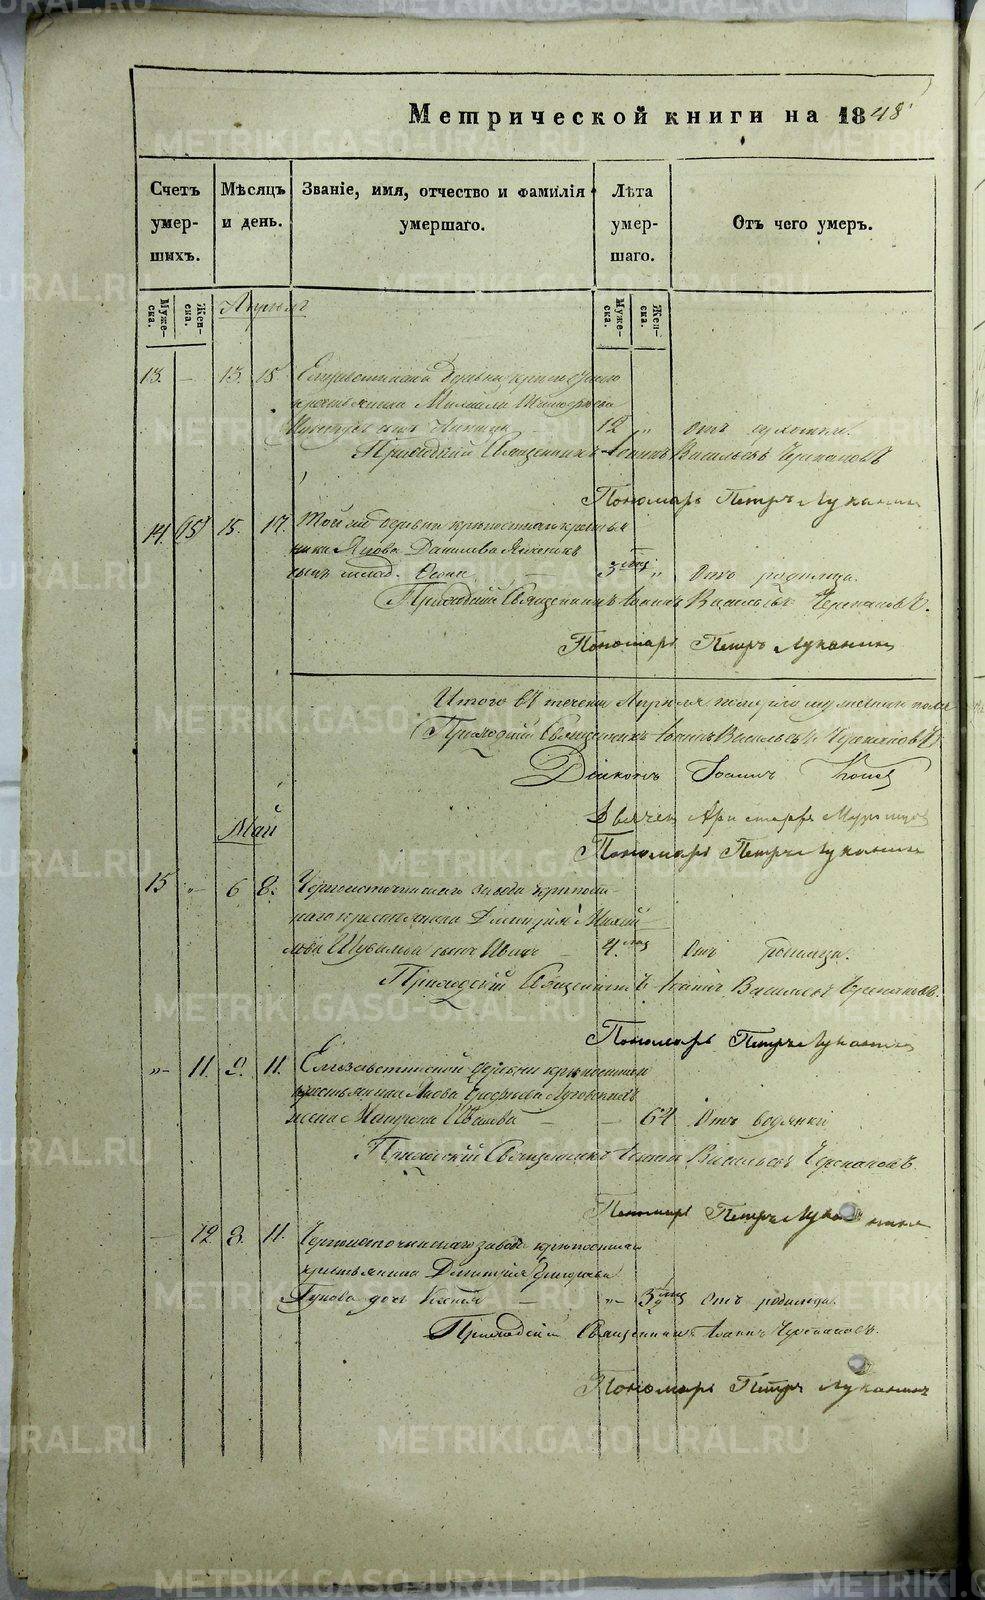 Метрической книги на 1848
Счетъ умер-шихъ.
Мѣсяцъ и день.
Званіе, имя, отчество и фамилія умершаго.
Лѣта умер-шаго.
Отъ чего умеръ.
Муже-ска.
Жен-ска.
Муже-ска.
Жен-ска.
Апрель
13. — 13. 15
крестьянина Михаила
сынъ 12 „ Отъ
Приходскій Священникъ Іоаннъ Васильевъ Черепановъ
Пономарь Петръ Луканин
14. 15. 17. Той же деревни крепостнаго крестья
нина Якова Данилова
сынъ млад. 3 мец „ Отъ родимца.
Приходскій Священникъ Іоаннъ Васильевъ Черепановъ.
Пономарь Петръ Луканин
Итого въ течени Апреля померло мужеска пола
Приходскій Священникъ Іоаннъ Васильевъ Черепановъ
Діяконъ Іоаннъ
Дьячек Аристархъ
Май
Пономарь Петръ Луканин
15 „ 6 8. Черноисточинскаго завода крепост-
наго крестьянина Димитрія Михай
лова Шувалова сынъ Иванъ — 4. мец Отъ родимца.
Приходскій Священникъ Іоаннъ Васильевъ Черепановъ.
Пономарь Петръ Луканин
„ 11. 9. 11. Елизаветинской деревни крепостнаго
крестьянина Якова
жена Матрена — — 64 Отъ водянки
Приходскій Священникъ Іоаннъ Васильевъ Черепановъ.
Пономарь Петръ Луканин
— 12 8. 11. Черноисточинскаго завода крепостнаго
крестьянина Дмитрія Григорьева
дочь — „ 3 мец Отъ родимца.
Приходскій Священникъ Іоаннъ Черепановъ.
Пономарь Петръ Луканин
METRIKI.GASO-URAL.RU